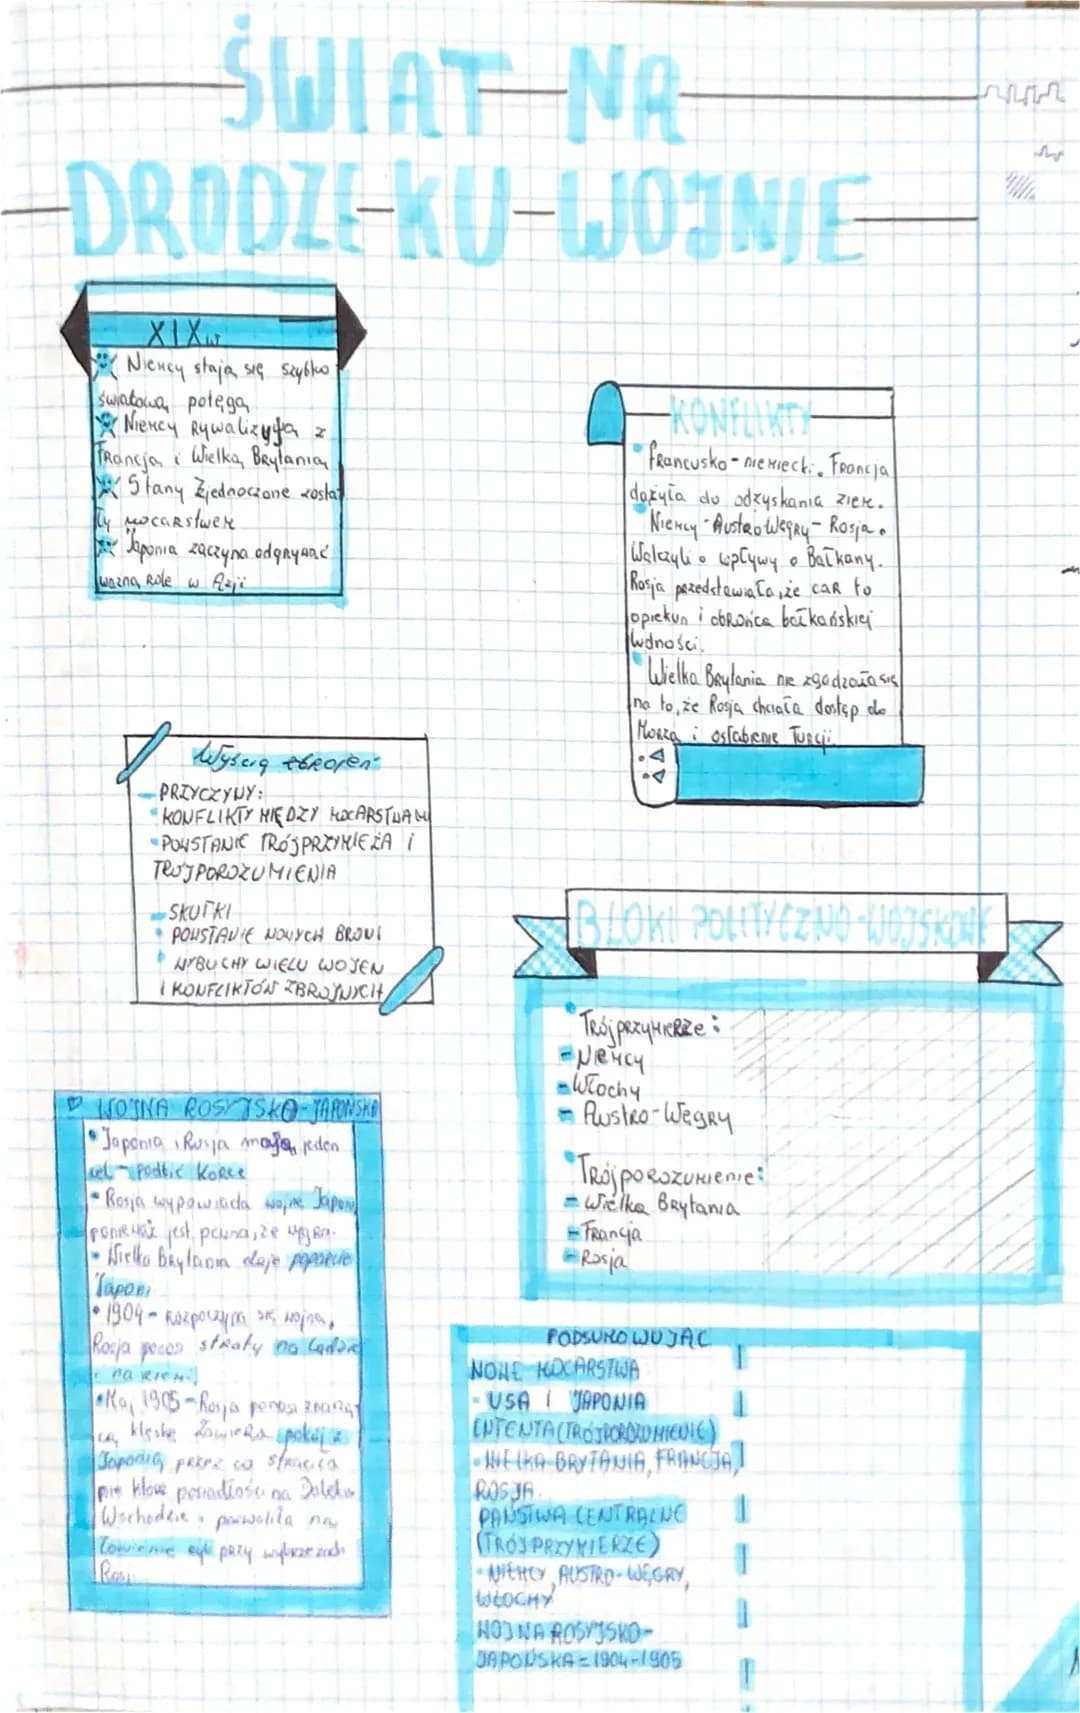 ŚWIAT NA
DRODZE KU WOJNIE
XIXw
Niemcy stają się szybko
światową potęgą
Niemcy Rywalizują z
Francją i Wielką Brytanią
Stany Zjednoczone zosta
ły mocarstwem
Japonia zaczyna odgrywać
ważną Rolę w Azji
KONFLIKTY
francusko-niemiecki. Francja
dążyła do odzyskania ziem.
Niemcy-Austro Węgry-Rosja.
Walczyli o wpływy o Bałkany.
Rosja przedstawiała, że caR to
opiekun i obRońca bałkańskiej
wolności.
Wielka BRytania nie zgadzała się
na to, że Rosja chciała dostęp do
Morza i osłabienie Turcji
Wyścig zbrojeń
PRZYCZYNY:
KONFLIKTY MIĘDZY MOCARSTWAMI
POWSTANIE TRÓJPRZYMIEŻA I
TRÓJPOROZUMIENIA
SKUTKI
POWSTANIE NOWYCH BRONI
WYBUCHY WIELU WOJEN
I KONFLIKTÓW ZBROJNYCH
BLOKI POLITYCZNO-WOJSKOWE
Trójprzymierze:
-Niemcy
-Włochy
-Austro-Węgry
Trójporozumienie:
-Wielka Brytania
-Francja
-Rosja
WOJNA ROSYJSKO-JAPOŃSKA
Japonia i Rosja mają jeden
cel - podbić Koree
Rosja wypowiada wojnę Japoni
ponieważ jest pewna, że wygra.
Wielka Brytania daje poparcie
Japoni
1904 - Rozpoczyna się wojna,
Rosja ponosi straty na lądzie
i na
Maj 1905-Rosja ponosi znaczą
cą klęskę Zawiera pokój z
Japonią przez co straciła
posiadłości na Dalekim
Wschodzie i pozwoliła na
łowienie ryb przy wybrzeżach
Rosji
PODSUMOWUJĄC
NOWE MOCARSTWA
- USA I JAPONIA
ENTENTA(TRÓJPOROZUMIENIE)
- WIELKA BRYTANIA, FRANCJA,
ROSJA.
PAŃSTWA CENTRALNE
(TRÓJPRZYMIERZE)
- NIEMCY, AUSTRO-WĘGRY,
WŁOCHY
WOJNA ROSYJSKO-
JAPOŃSKA = 1904-1905